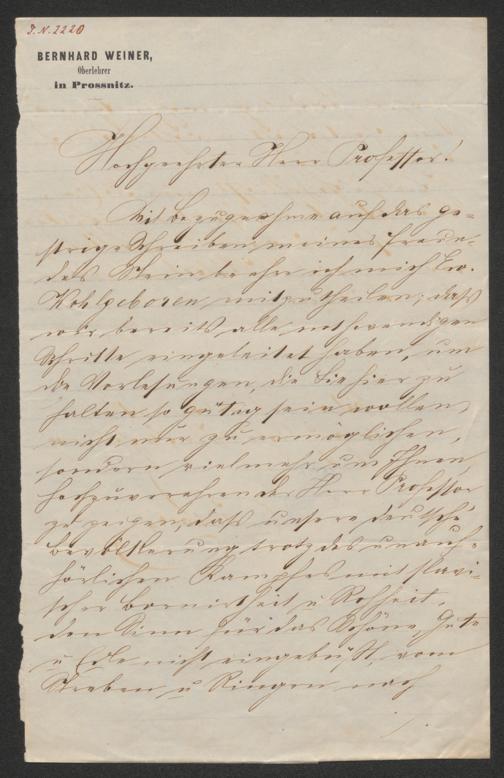 J.N. 2220
BERNHARD WEINER,
Oberlehrer
in Prossnitz.
Hochgeehrter Herr Professor!
Mit Bezugnahme auf das ge-
strige Schreiben meines Freun-
des Klein beehre ich mich Ew.
Wohlgeboren mitzutheilen, daß
wir bereits alle nothwendigen
Schritte eingeleitet haben, um
die Vorlesungen, die Sie hier zu
halten so gütig sein wollen,
nicht nur zu ermöglichen,
sondern vielmehr um Ihnen,
hochzuverehrender Herr Professor
zu zeigen, daß unsere deutsche
Bevölkerung trotz des unauf-
hörlichen Kampfes mit slavi-
scher Bornirtheit u Rohheit,
den Sinn für das Schöne, Gute
u Edle nicht eingebüßt, vom
Streben u Ringen nach